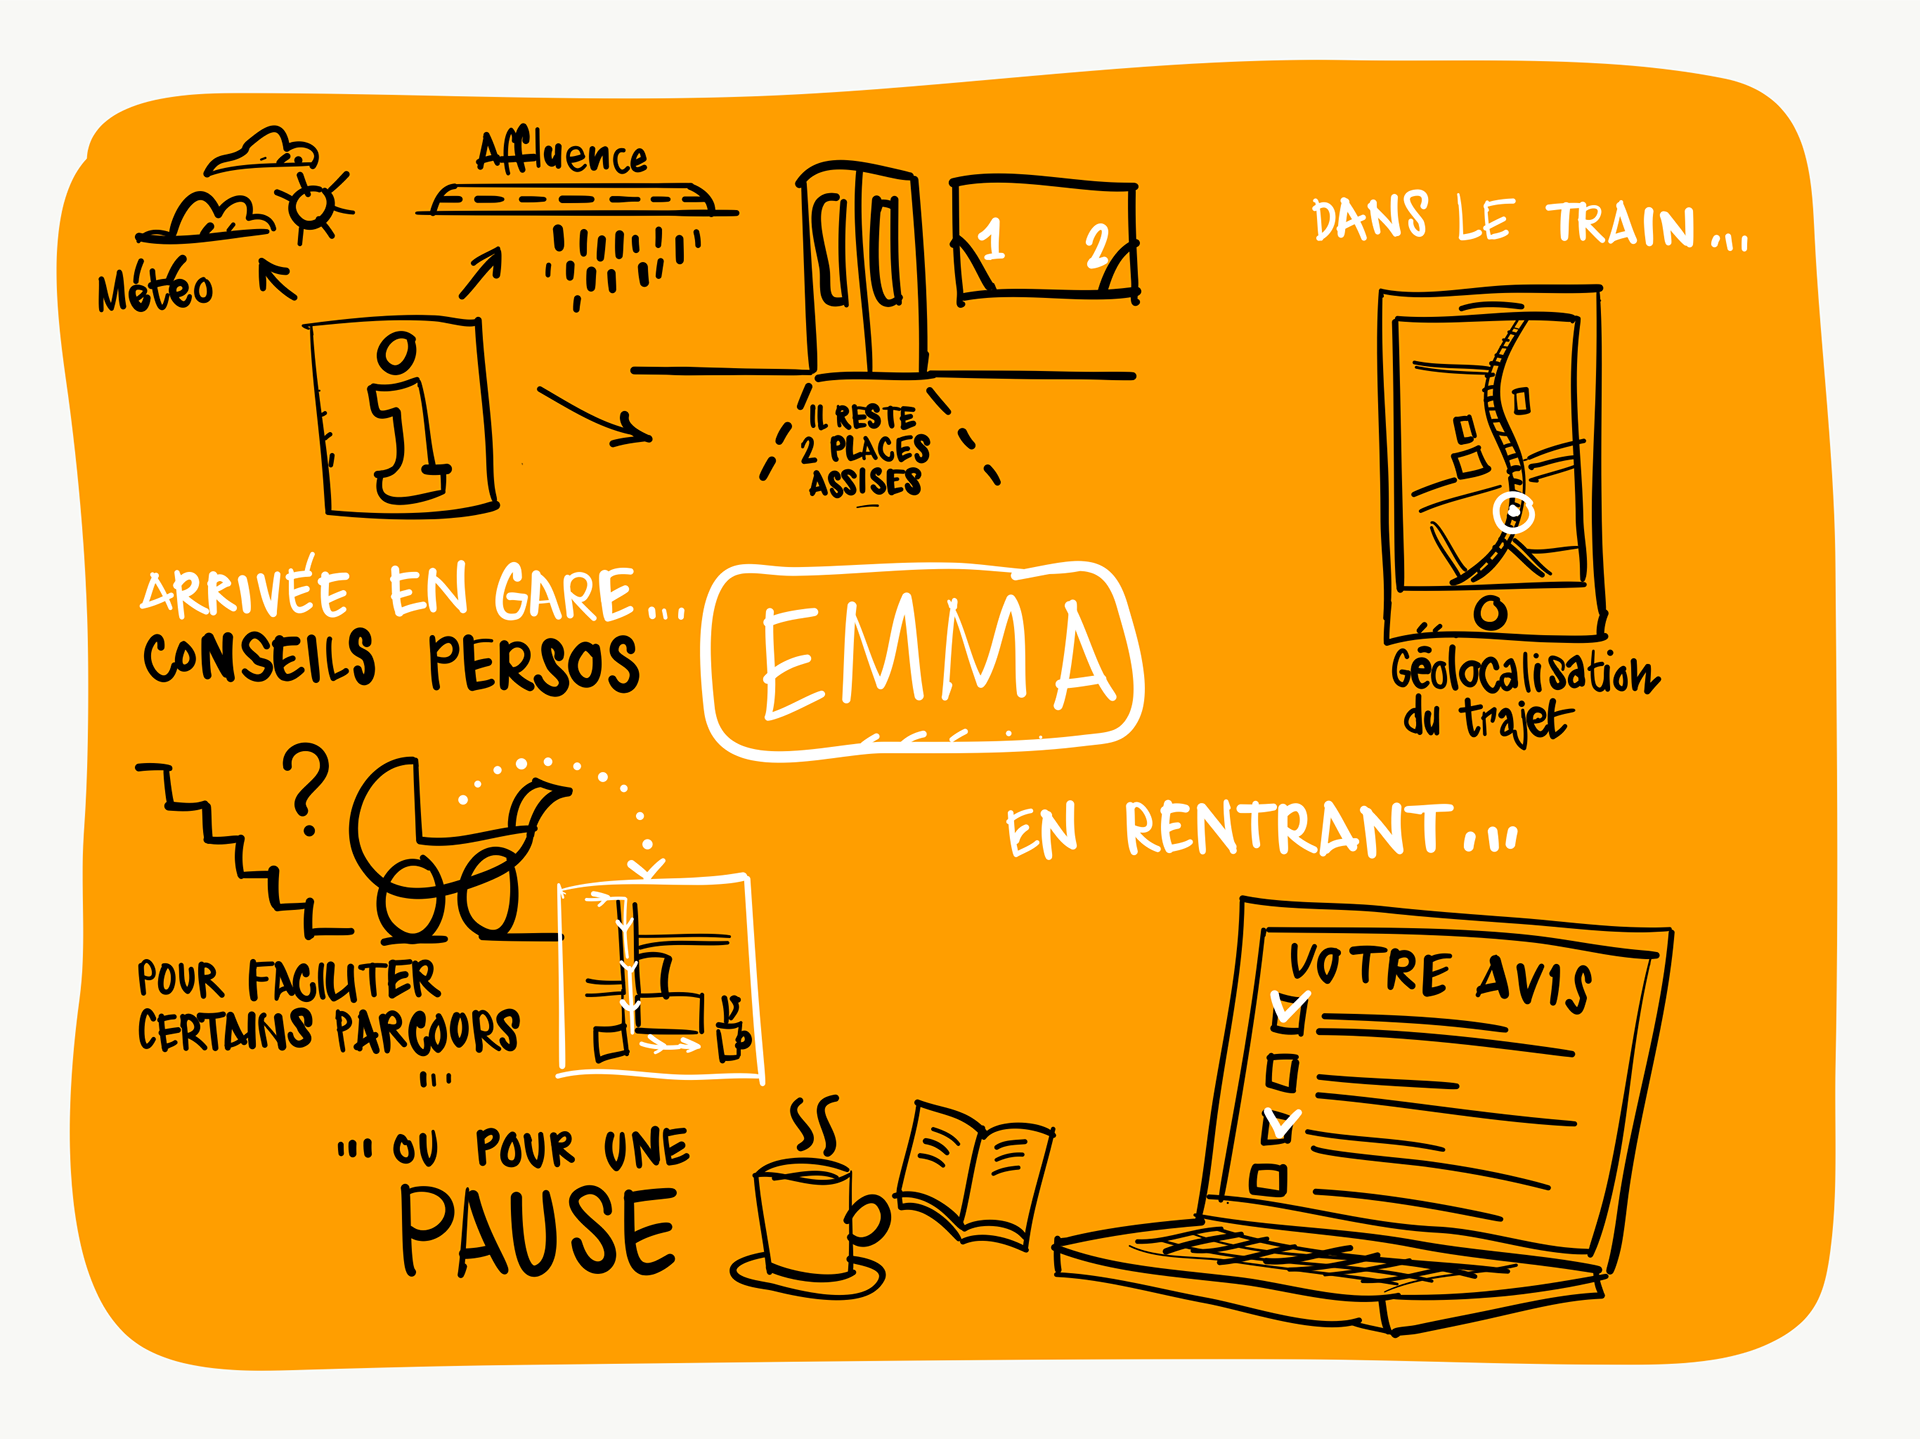 Météo
Affluence
i
1 2
IL RESTE
2 PLACES
ASSISES
ARRIVÉE EN GARE...
CONSEILS PERSOS
EMMA
?
POUR FACILITER
CERTAINS PARCOURS
...
... OU POUR UNE
PAUSE
DANS LE TRAIN...
Géolocalisation
du trajet
EN RENTRANT...
VOTRE AVIS